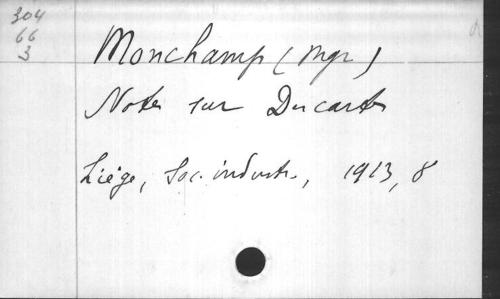 304
66
3
Monchamp (Mgr)
Notes sur Descartes
Liège, Soc. industr., 1913, 8